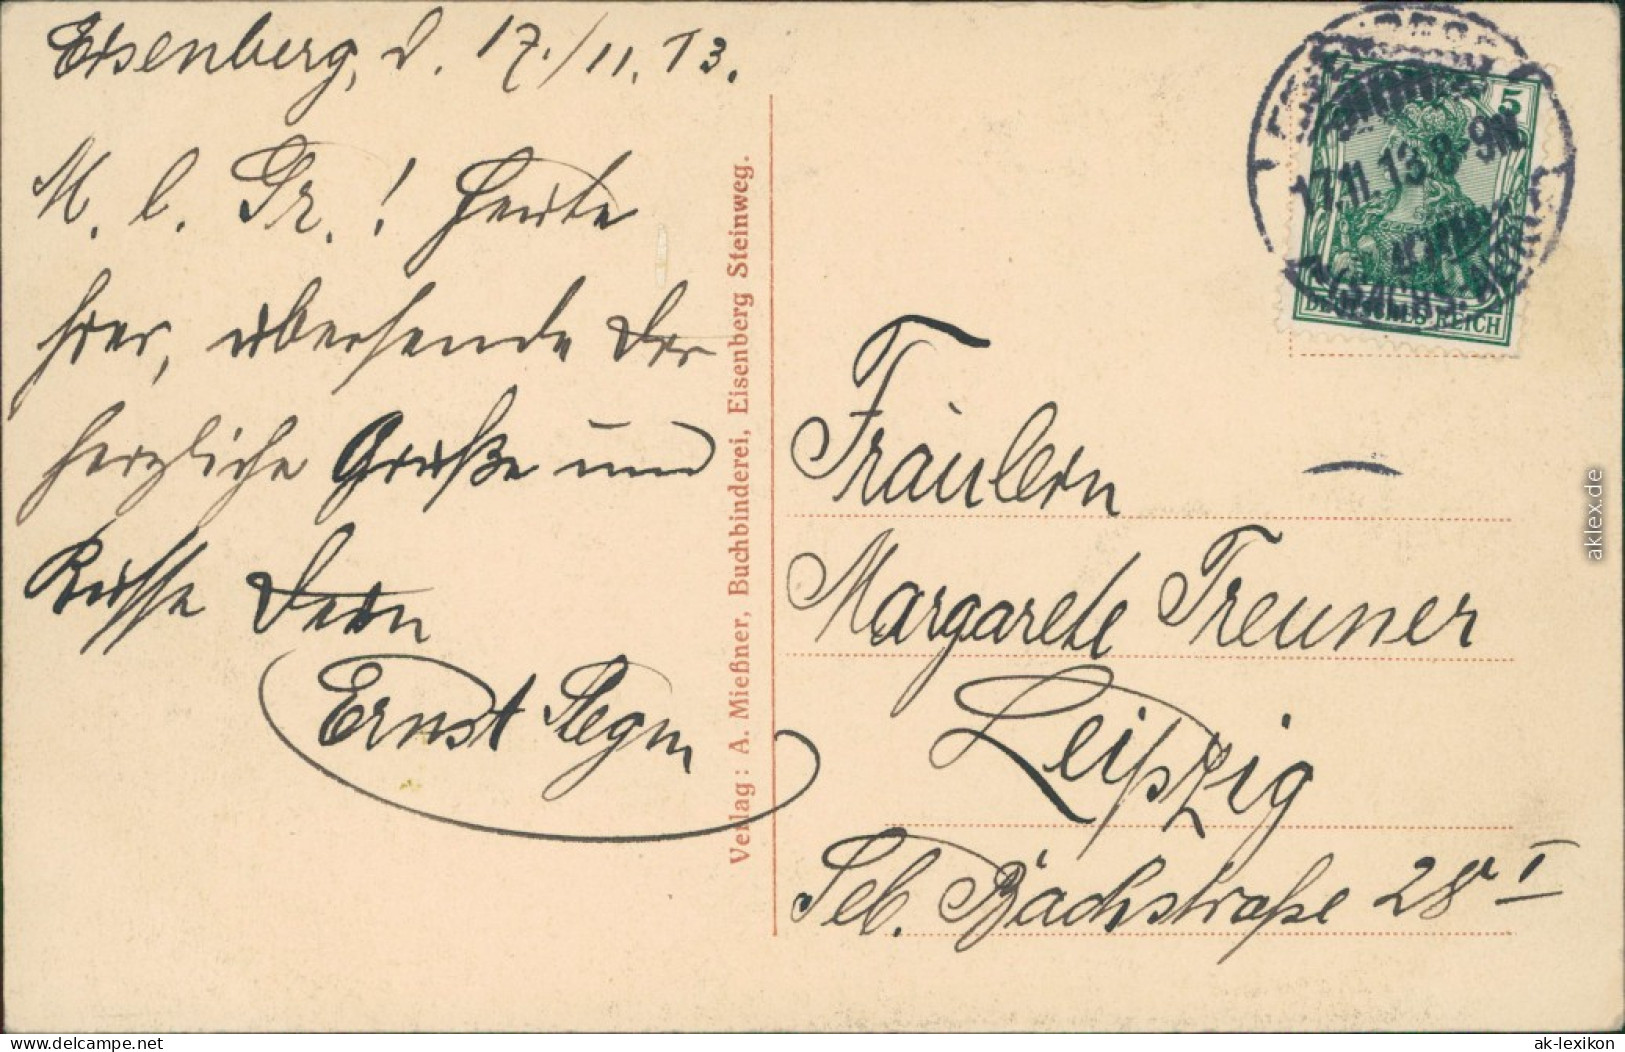 Eisenberg, d. 17./11.13.
M. l. Gr.! Heute
hier, übersende Dir
herzliche Grüße und
Küsse Dein
Ernst
Verlag: A. Mießner, Buchbinderei, Eisenberg Steinweg.
5
17.11.13.8-9N.
(SACHS.-ALTBG.)
DEUTSCHES REICH
Fräulein
Margarete Treuner
Leipzig
Seb. Bachstraße 28 I
aklex.de
www.delcampe.net
ak-lexikon